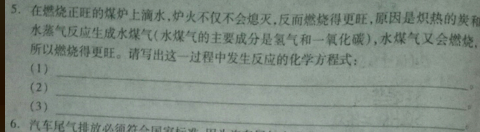 5. 在燃烧正旺的煤炉上滴水,炉火不仅不会熄灭,反而燃烧得更旺,原因是炽热的炭和
水蒸气反应生成水煤气(水煤气的主要成分是氢气和一氧化碳),水煤气又会燃烧,
所以燃烧得更旺。请写出这一过程中发生反应的化学方程式:
(1)
(2)
(3)
6. 汽车尾气排放必须符合国家标准